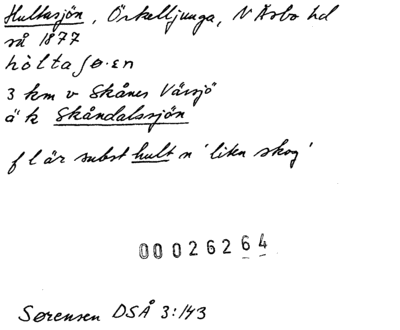 Hultasjön, Örkelljunga, N Åsbo hd
så 1877
hòltaʃø·en
3 km v Skånes Värsjö
ä k Skåndalssjön
f l är subst hult n 'liten skog'
00026264
Sørensen DSÅ 3:143